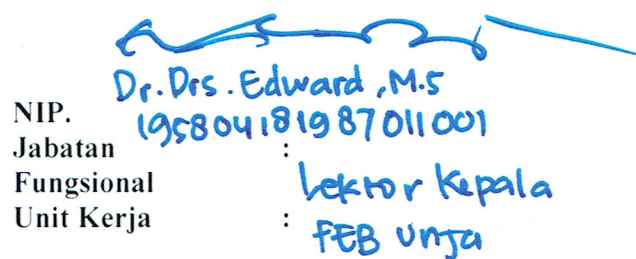 Dr. Drs. Edward, M.S
NIP. 195804181987011001
Jabatan :
Fungsional Lektor Kepala
Unit Kerja : FEB Unja